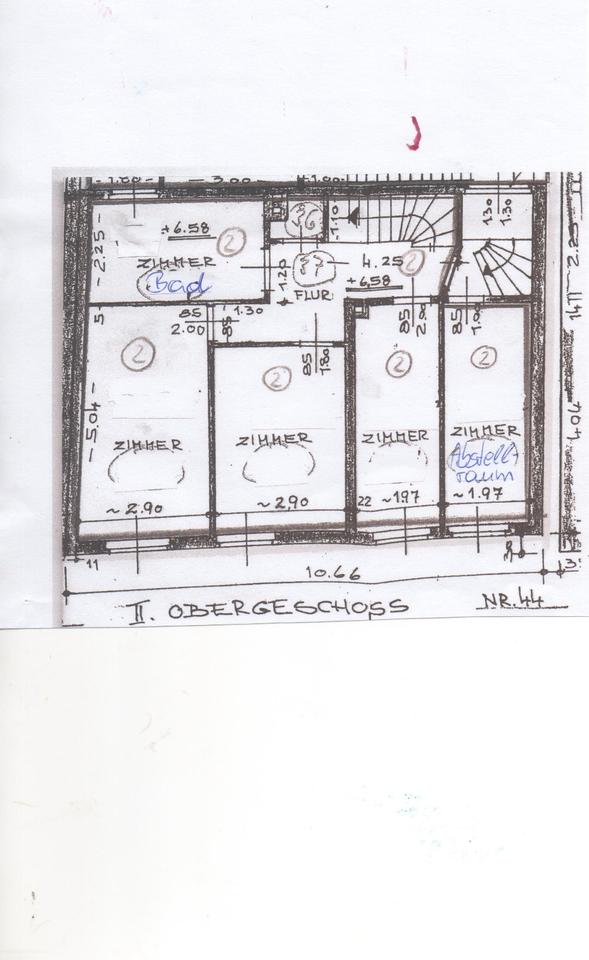 3.00
+6.58
2
ZIMMER
Bad
2.25
36
1.10
37
FLUR
1.20
4.25
2
+6.58
1.30
1.30
2.25
85
2.00
85
1.30
85
1.80
85
85
2
2
2
2
5.04
ZIMMER
ZIMMER
ZIMMER
ZIMMER
Abstell
raum
~2.90
~2.90
22
~1.97
~1.97
4.04
11
10.66
II. OBERGESCHOSS
NR.44